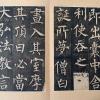 即出囊中舍
利使吞之及
誕所夢僧白
晝入其室摩
其頂曰必當
大弘法教言